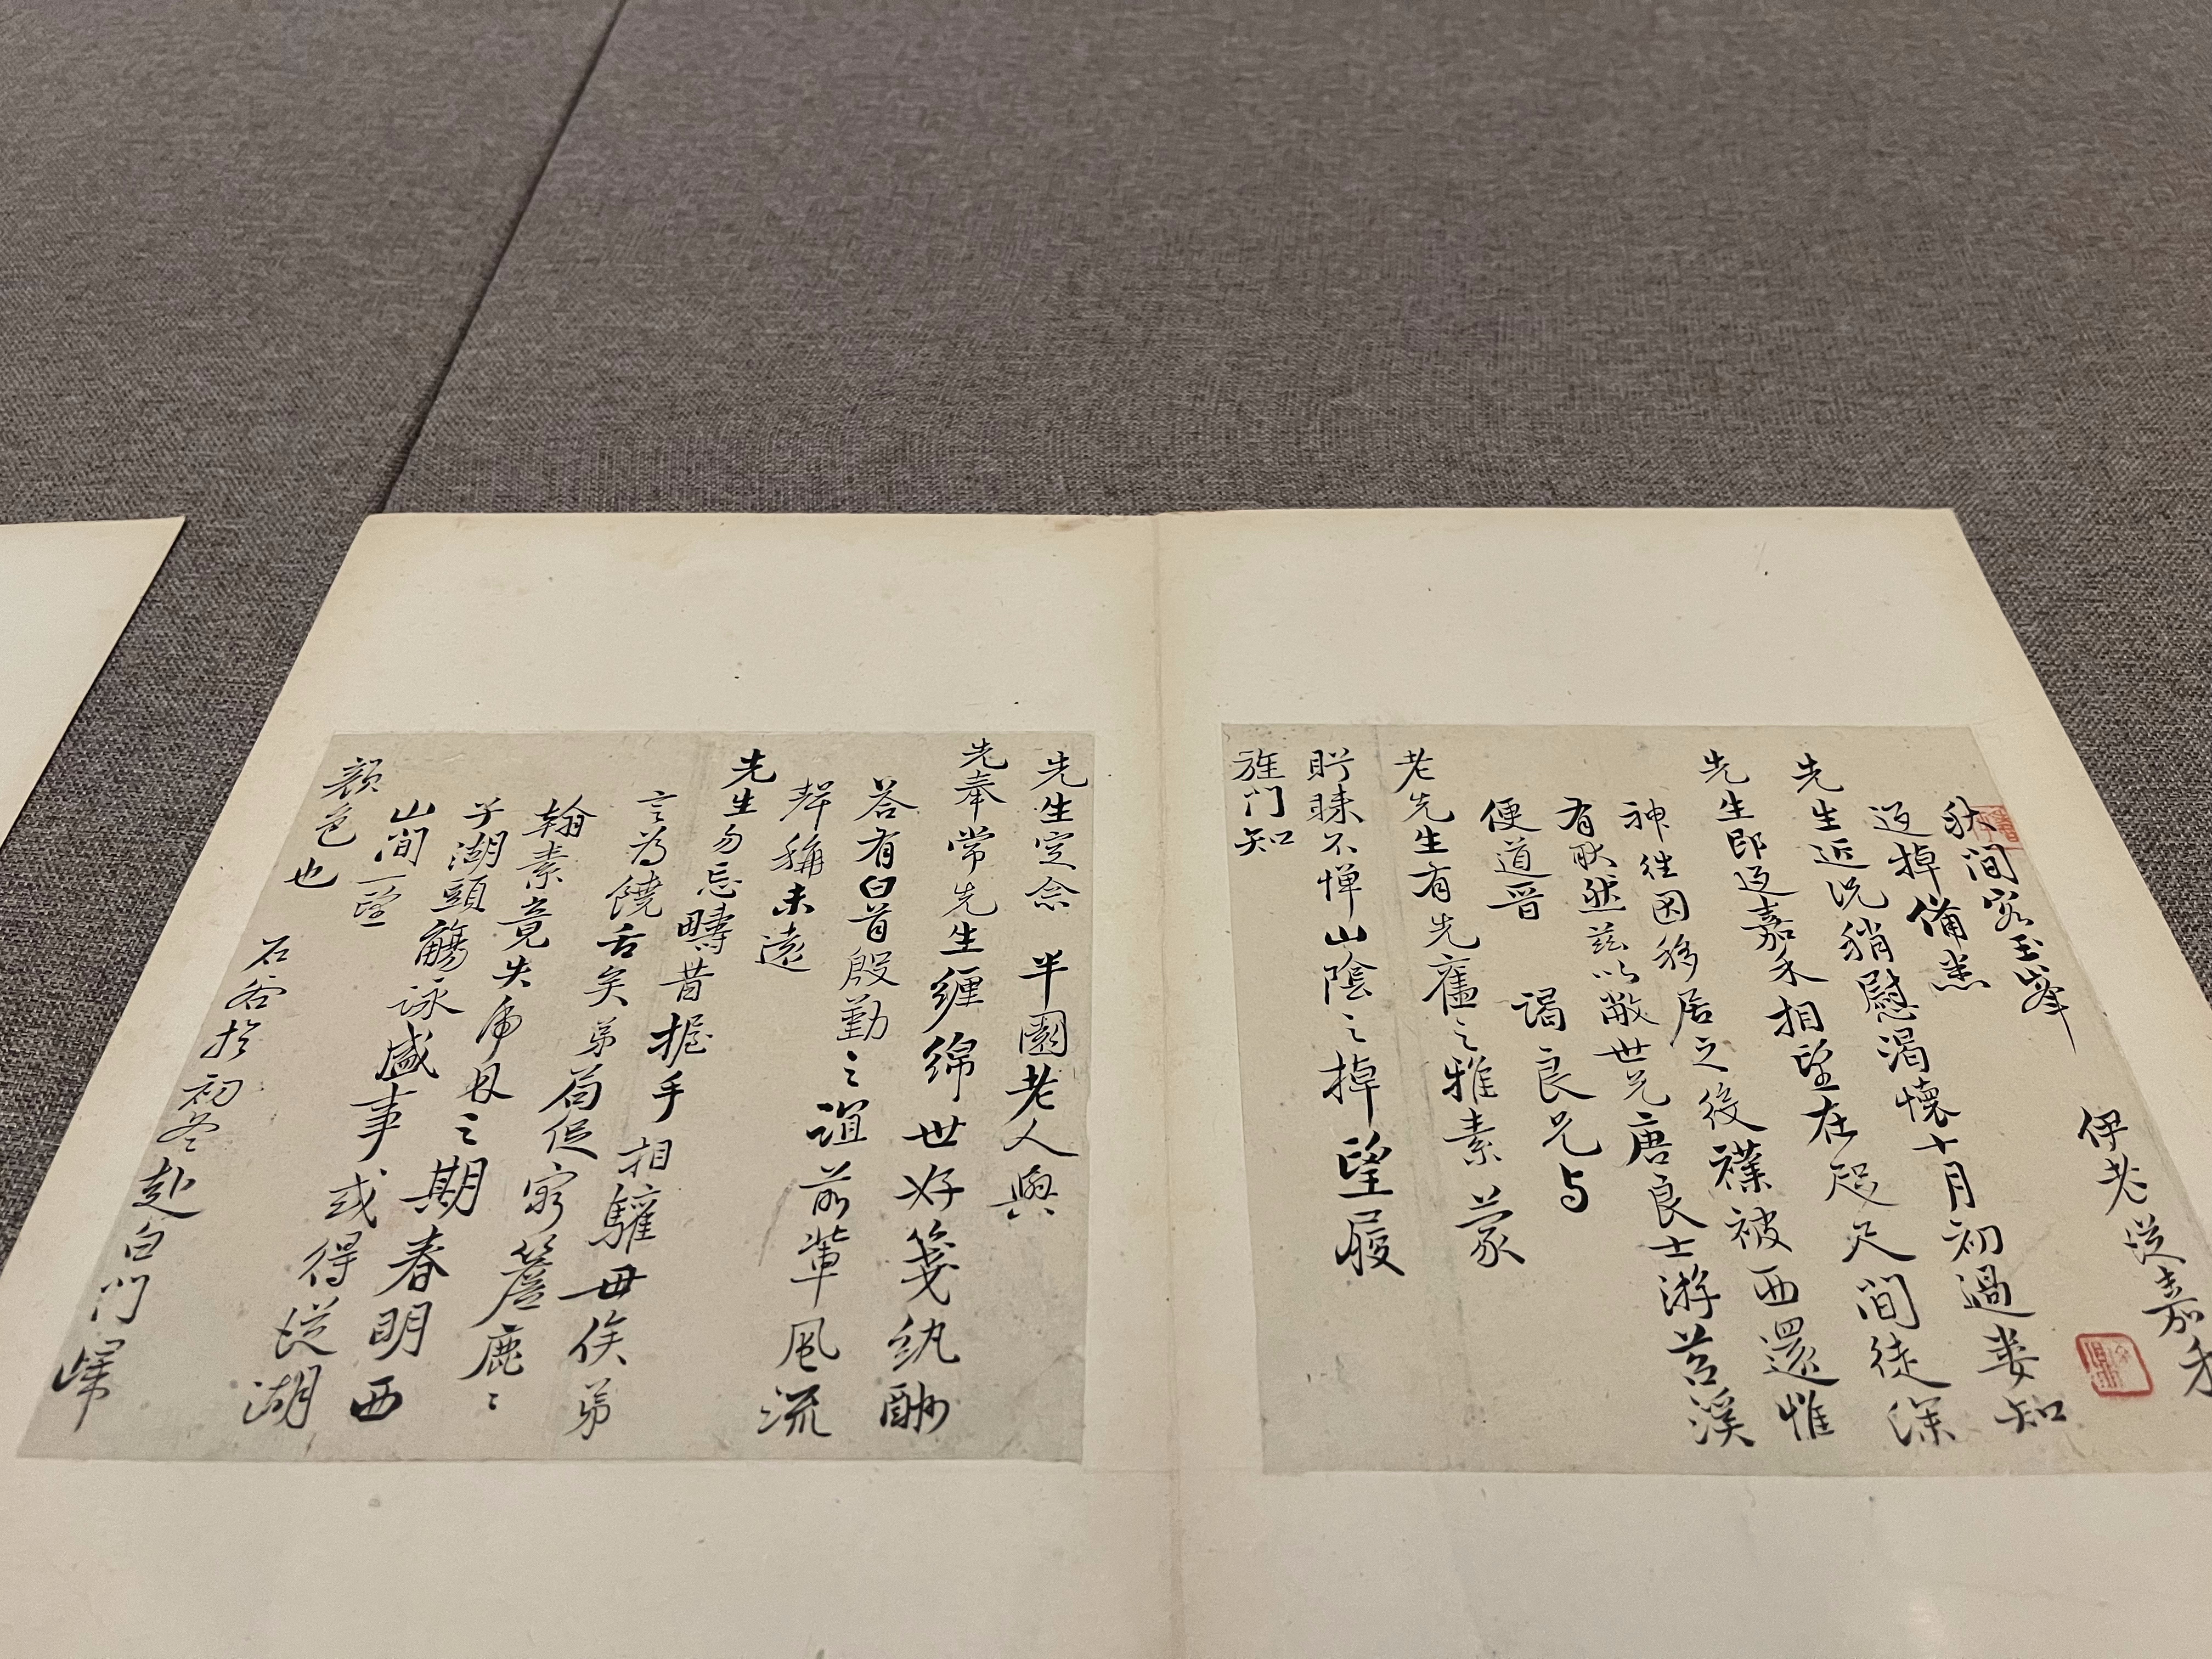 秋間客玉峯 伊老從嘉禾
返棹備悉
先生近況稍慰渴懷十月初過婁知
先生即返嘉禾相望在咫尺間徒深
神往因移居之後襆被西還惟
有耿然茲以敝世兄唐良士游苕溪
便道晋謁良兄与
老先生有先舊之雅素蒙
盻睞不憚山陰之棹望履
旌門知
先生定念 半園老人與
先奉常先生纏綿世好箋紈酬
答有白首殷勤之誼前輩風流
輝稱未遠
先生勿忘疇昔握手相驩毋俟弟
言為饒舌矣弟局促窮簷鹿ミ
翰素竟失之期春明西
子湖頭觴詠盛事或得從湖
山間一望
顏色也
石谷於初冬赴白門歸